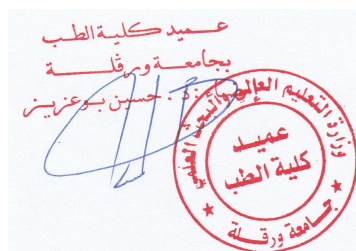 عميد كلية الطب
بجامعة ورقلة
د. حسين بوعزيز
وزارة التعليم العالي والبحث العلمي
عميد
كلية الطب
جامعة ورقلة